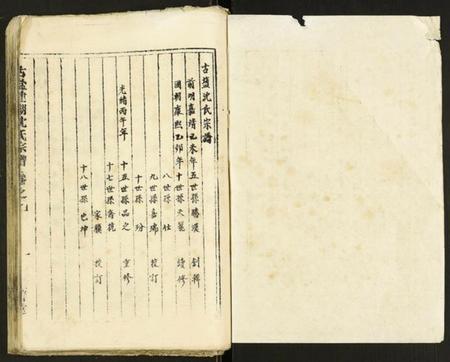 古鹽沈氏宗譜
前明嘉靖乙未年五世孫勝溪 創輯
國朝康熙乙卯年十世孫大 續修
八世孫 仕
九世孫嘉瑞 校訂
十世孫 玢
光緒丙午年 十五世孫品之 重修
十七世孫
家 校訂
十八世孫 坤
沈氏宗譜 卷之九